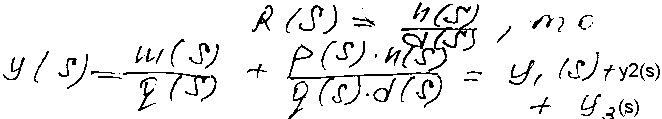 R(s) = n(s)/d(s), то
y(s) = m(s)/q(s) + p(s)·n(s)/q(s)·d(s) = y₁(s)+y2(s)
+ y₃(s)